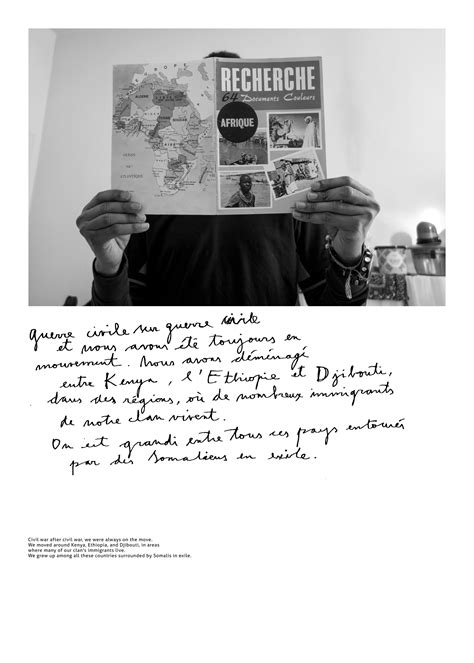 RECHERCHE
64 Documents Couleurs
AFRIQUE
guerre civile sur guerre civile
et nous avons été toujours en
mouvement. Nous avons déménagé
entre Kenya, l'Ethiopie et Djibouti,
dans des régions, où de nombreux immigrants
de notre clan vivent.
On est grandi entre tous ces pays entourés
par des Somaliens en exile.
Civil war after civil war, we were always on the move.
We moved around Kenya, Ethiopia, and Djibouti, in areas
where many of our clan's immigrants live.
We grew up among all these countries surrounded by Somalis in exile.